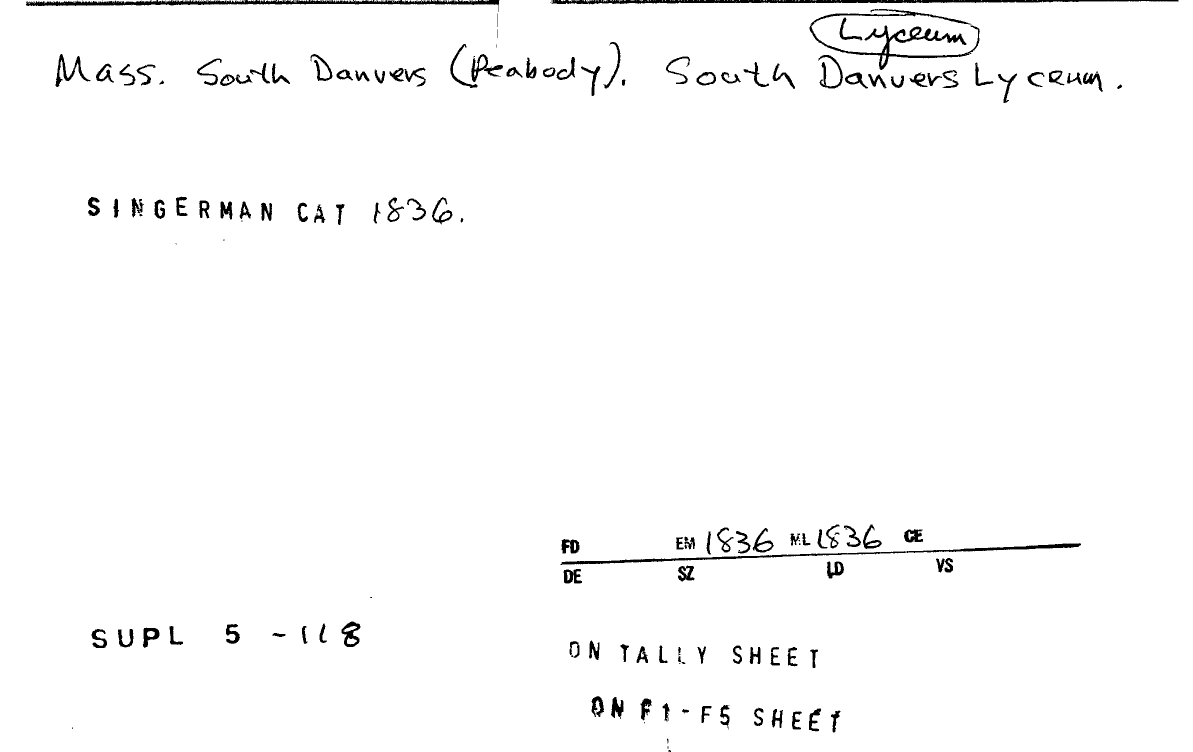 Lyceum
Mass. South Danvers (Peabody). South Danvers Lyceum.
SINGERMAN CAT 1836.
FD EM 1836 ML 1836 CE
DE SZ LD VS
SUPL 5 -118
ON TALLY SHEET
ON F1-F5 SHEET